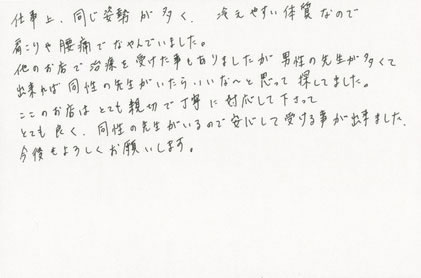 仕事上、同じ姿勢が多く、冷えやすい体質なので
肩こりや腰痛でなやんでいました。
他のお店で治療を受けた事もありましたが男性の先生が多くて
出来れば同性の先生がいたらいいな〜と思って探してました。
ここのお店はとても親切で丁寧に対応して下さって
とても良く、同性の先生がいるので安心して受ける事が出来ました。
今後もよろしくお願いします。